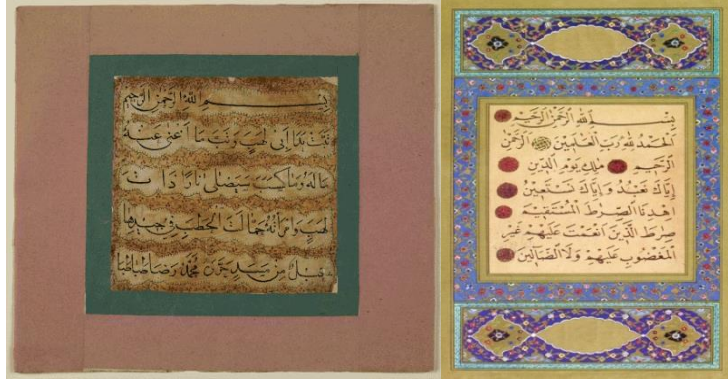 بسم الله الرحمن الرحيم
تبت يدا ابى لهب وتب ما اغنى عنه
ماله وما كسب سيصلى نارا ذات
لهب وامراته حمالة الحطب فى جيدها
حبل من مسد محمد رضا طباطبا
بِسْمِ ٱللَّهِ ٱلرَّحْمٰنِ ٱلرَّحِيمِ
ٱلْحَمْدُ لِلَّهِ رَبِّ ٱلْعٰلَمِينَ ٱلرَّحْمٰنِ
ٱلرَّحِيمِ مٰلِكِ يَوْمِ ٱلدِّينِ
إِيَّاكَ نَعْبُدُ وَإِيَّاكَ نَسْتَعِينُ
ٱهْدِنَا ٱلصِّرٰطَ ٱلْمُسْتَقِيمَ
صِرٰطَ ٱلَّذِينَ أَنْعَمْتَ عَلَيْهِمْ غَيْرِ
ٱلْمَغْضُوبِ عَلَيْهِمْ وَلَا ٱلضَّآلِّينَ